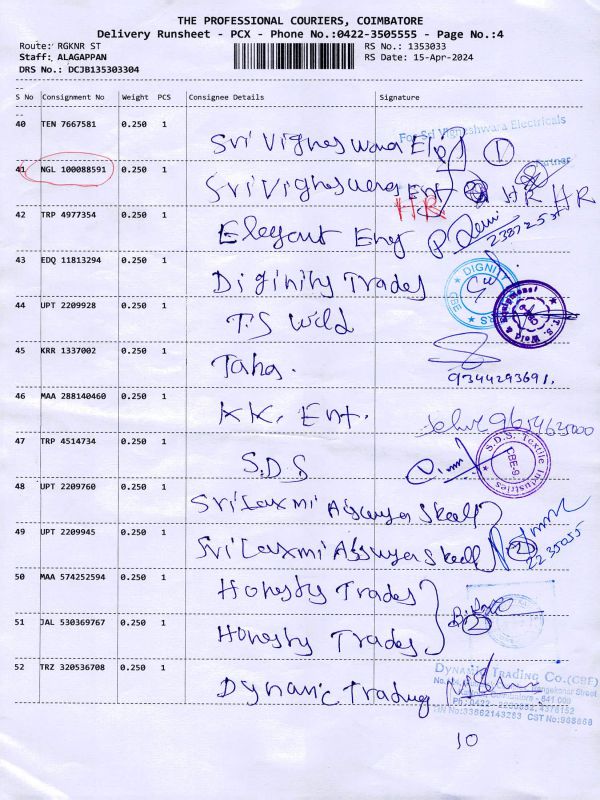 THE PROFESSIONAL COURIERS, COIMBATORE
Delivery Runsheet - PCX - Phone No.:0422-3505555 - Page No.:4
Route: RGKNR ST RS No.: 1353033
Staff: ALAGAPPAN RS Date: 15-Apr-2024
DRS No.: DCJB135303304
--
S No Consignment No Weight PCS Consignee Details Signature
--
40 TEN 7667581 0.250 1 Sri Vigneswara For Sri Vigneshwara Electricals 1
Partner
41 NGL 100088591 0.250 1 Sri Vigneswara Ent HR HR
HR
42 TRP 4977354 0.250 1 Elegant Eng
43 EDQ 11813294 0.250 1 Diginity Trades DIGNI CBE
44 UPT 2209928 0.250 1 T.S Weld T.S. Weld & Equipments
45 KRR 1337002 0.250 1 Taha. 9344293691.
46 MAA 288140460 0.250 1 KK. Ent. 9654625000
47 TRP 4514734 0.250 1 S.D.S S.D.S. Textile Industries CBE-9
48 UPT 2209760 0.250 1 Sri Laxmi
49 UPT 2209945 0.250 1 Sri Laxmi 2 22 35055
50 MAA 574252594 0.250 1 Honesty Trades
51 JAL 530369767 0.250 1 Honesty Trades 2
52 TRZ 320536708 0.250 1 Dynamic Trading DYNAMIC TRADING CO.(CBE)
Coimbatore - 641 009
CST No:968868
10